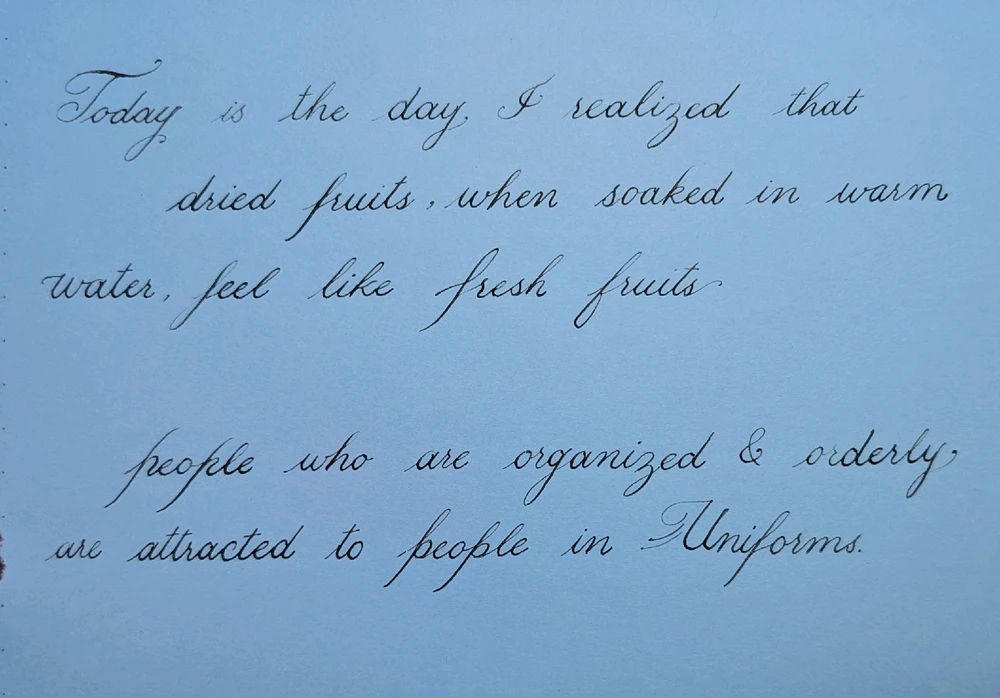 Today is the day. I realized that
dried fruits, when soaked in warm
water, feel like fresh fruits
people who are organized & orderly,
are attracted to people in Uniforms.